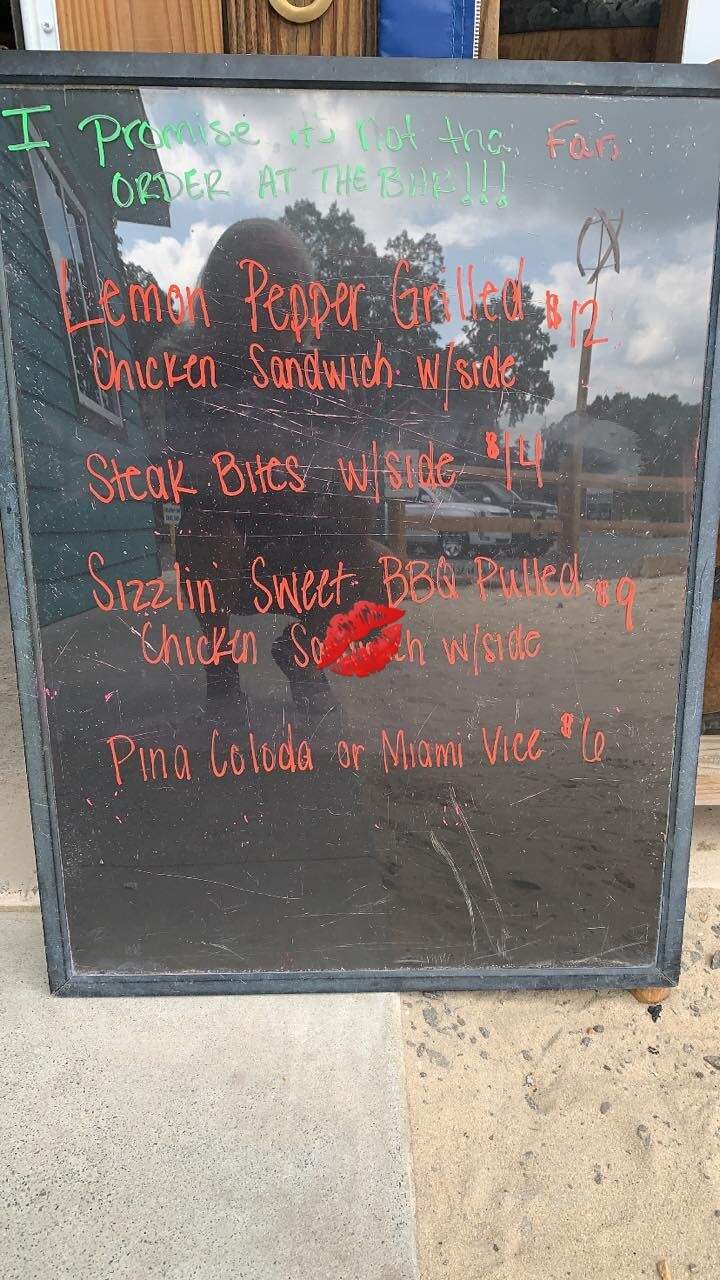 I Promise its not tha Far,
ORDER AT THE BAR!!!
Lemon Pepper Grilled $12
Chicken Sandwich w/side
Steak Bites w/side $14
Sizzlin' Sweet BBQ Pulled $9
Chicken w/side
Pina Coloda or Miami Vice $6